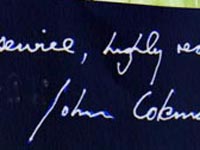 service, highly rec
John Colema